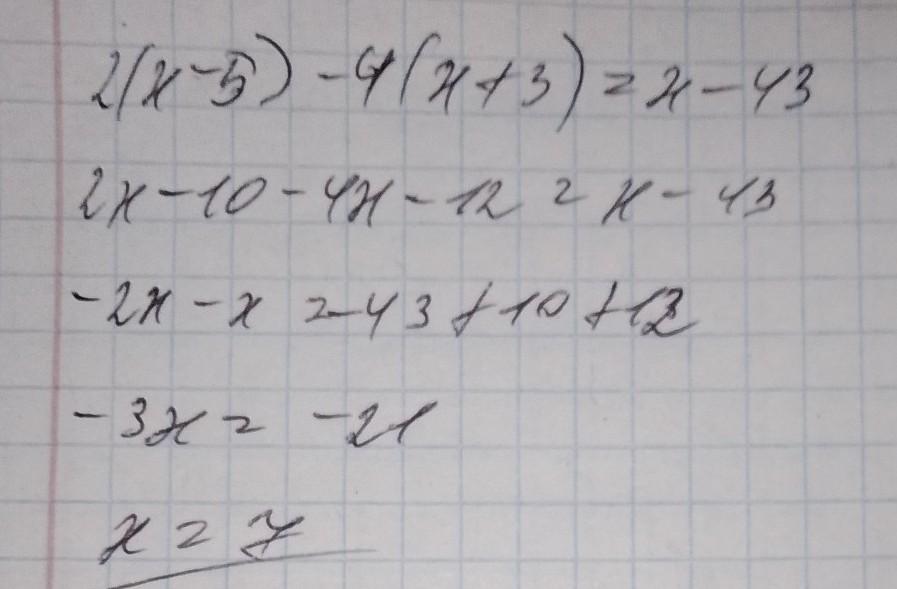 2(x-5)-4(x+3)=x-43
2x-10-4x-12=x-43
-2x-x=-43+10+12
-3x=-21
x=7